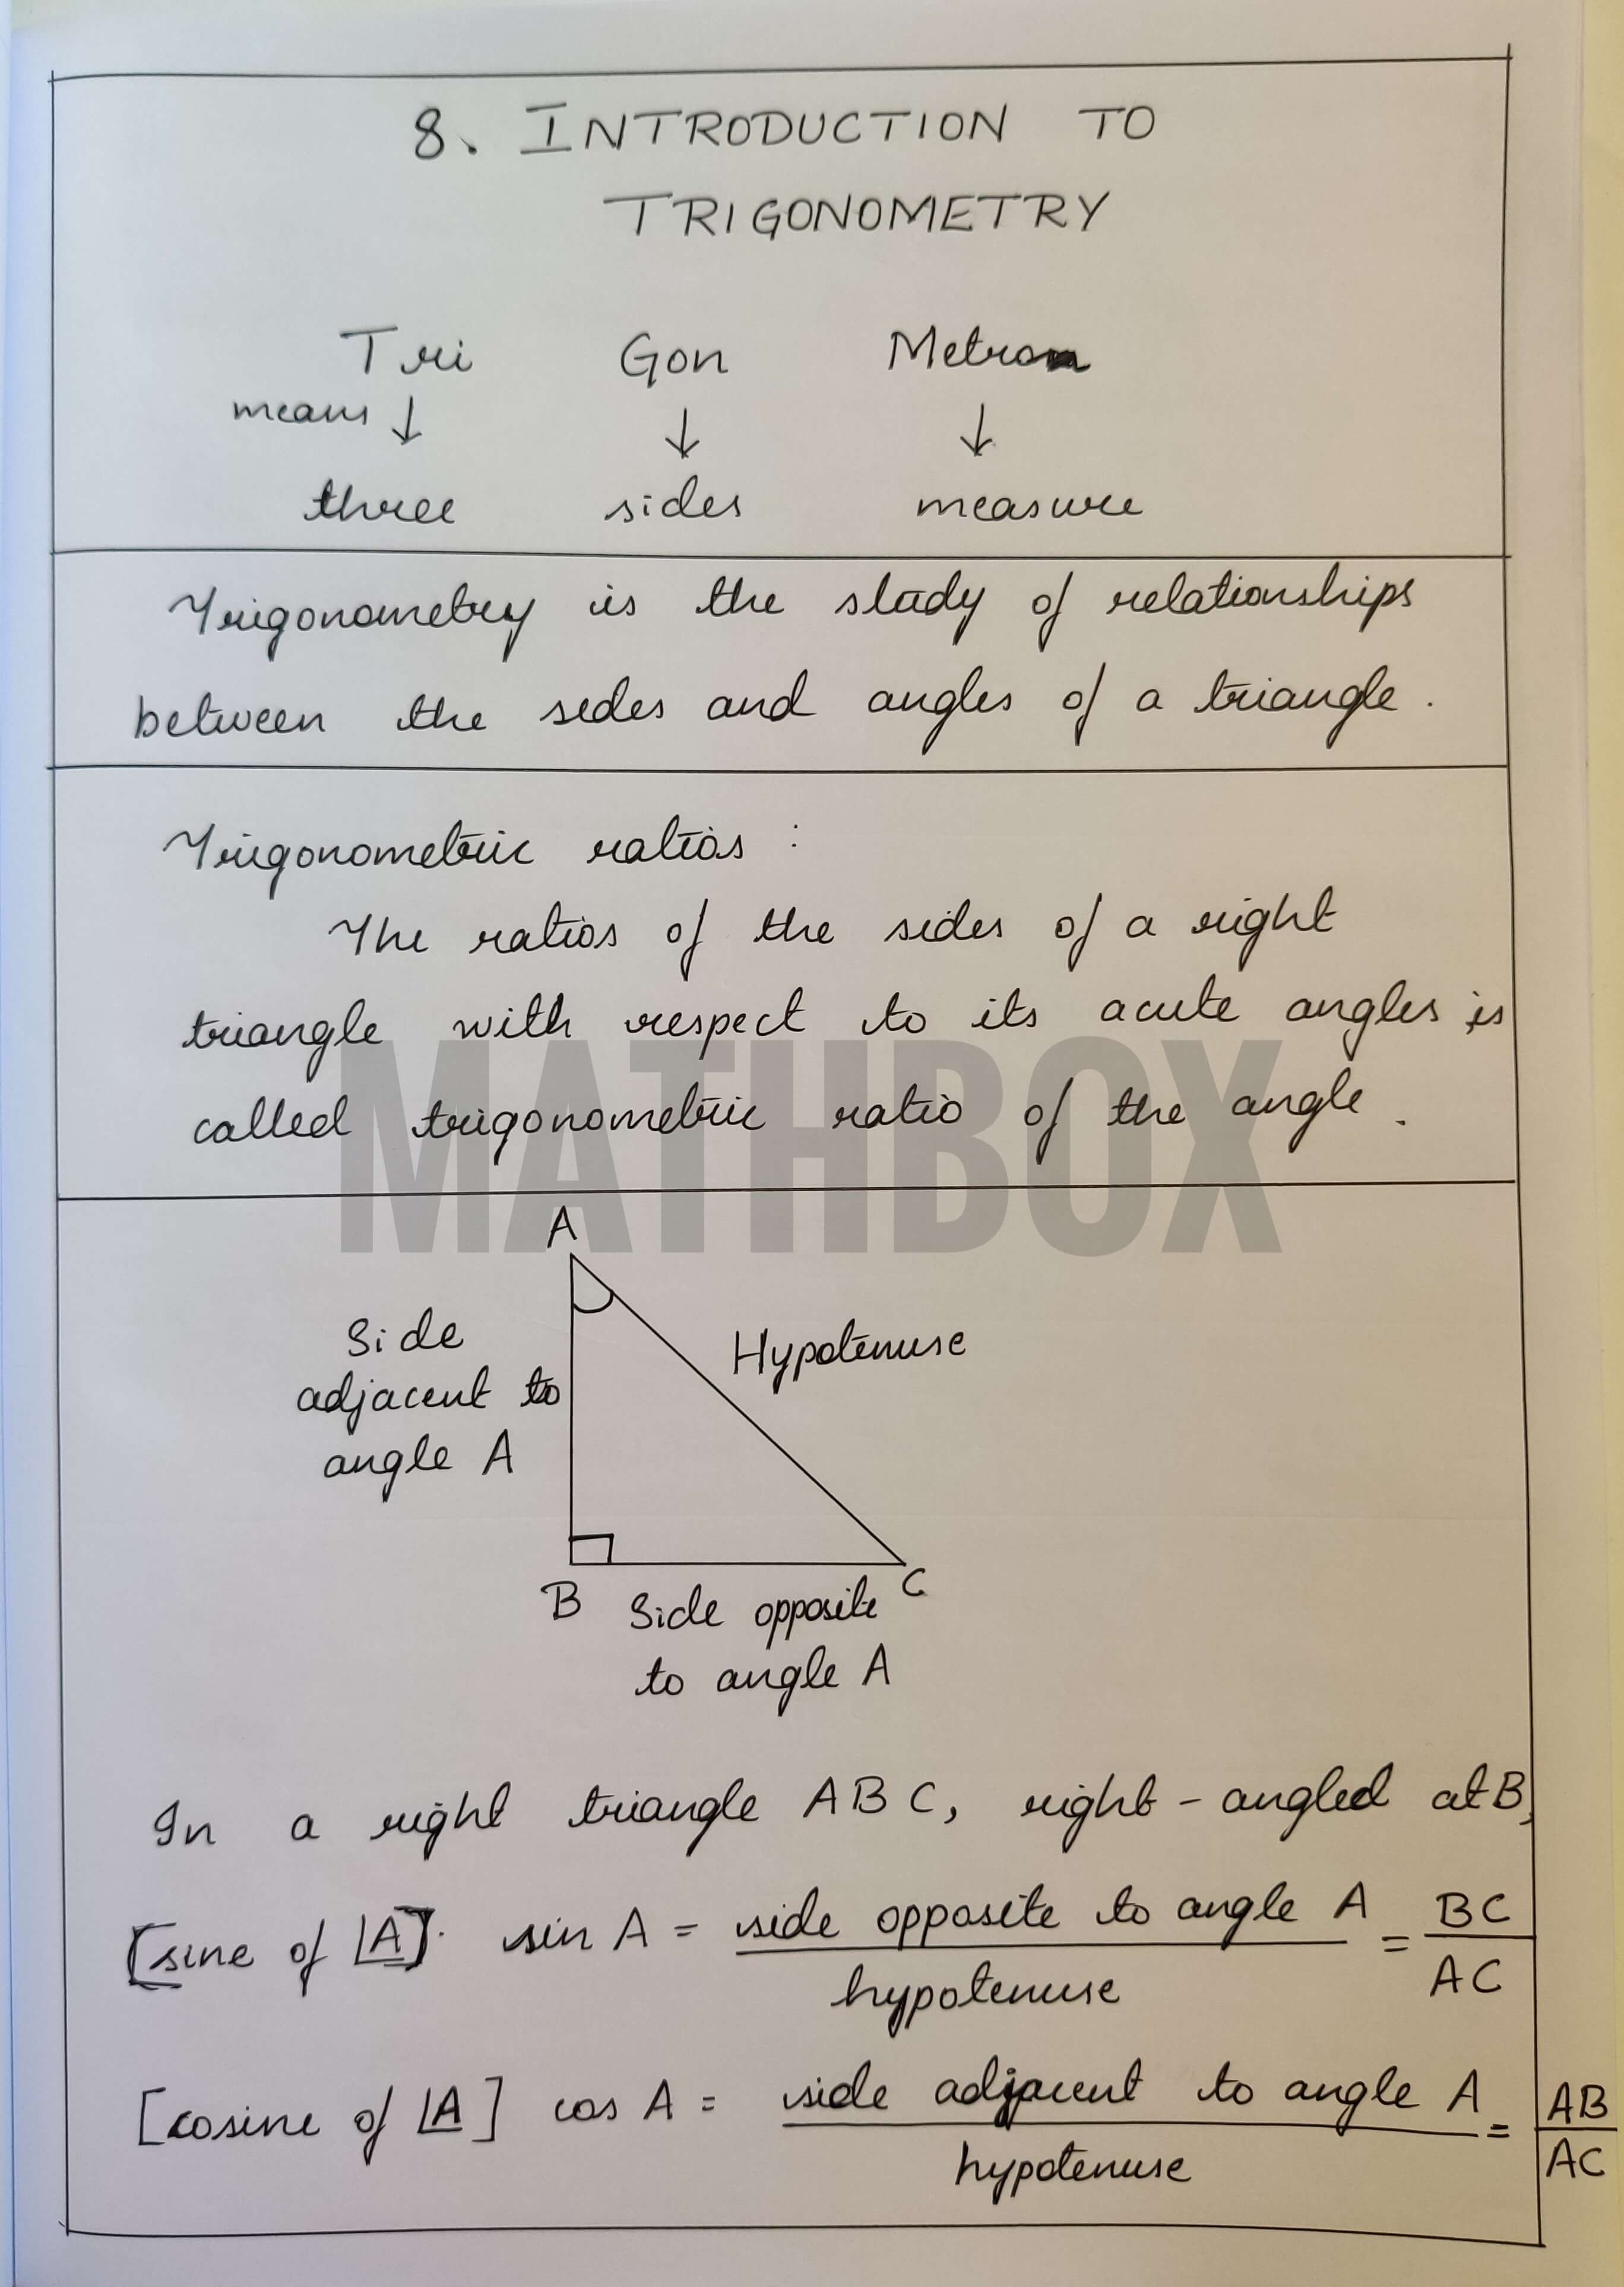 8. INTRODUCTION TO
TRIGONOMETRY
Tri Gon Metron
means ↓ ↓ ↓
three sides measure
Trigonometry is the study of relationships
between the sides and angles of a triangle.
Trigonometric ratios :
The ratios of the sides of a right
triangle with respect to its acute angles is
called trigonometric ratio of the angle.
MATHBOX
A
Side
adjacent to
angle A
Hypotenuse
B
C
Side opposite
to angle A
In a right triangle ABC, right-angled at B,
[sine of ∠A]. sin A = side opposite to angle A / hypotenuse = BC / AC
[cosine of ∠A] cos A = side adjacent to angle A / hypotenuse = AB / AC